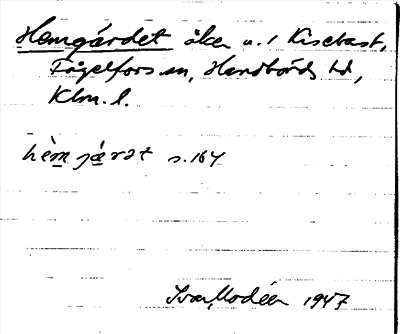 Hemgärdet åker u. 1 Kisebast,
Fågelfors sn, Handbörds hd,
Klm. l.
hèm járət s. 164
Ivar Modéer 1947